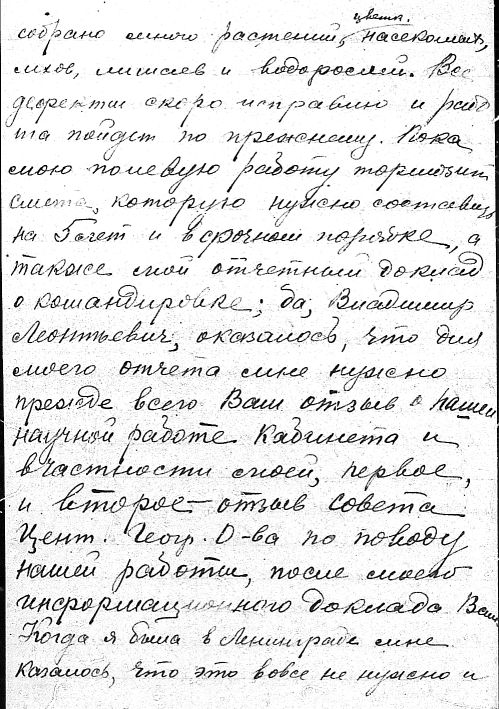 цветк.
собрано много растений, насекомых,
мхов, лишаев и водорослей. Все
дефекты скоро исправлю и рабо
та пойдет по прежнему. Пока
мою полевую работу тормозит
смета, которую нужно составить
на 5 лет и в срочном порядке, а
также мой отчетный доклад
о командировке; да, Владимир
Леонтьевич, оказалось, что для
моего отчета мне нужно
прежде всего Ваш отзыв о нашей
научной работе Кабинета и
в частности моей, первое,
и второе — отзыв совета
Цент. Геогр. О-ва по поводу
нашей работы, после моего
информационного доклада Вам
Когда я была в Ленинграде мне
казалось, что это вовсе не нужно и